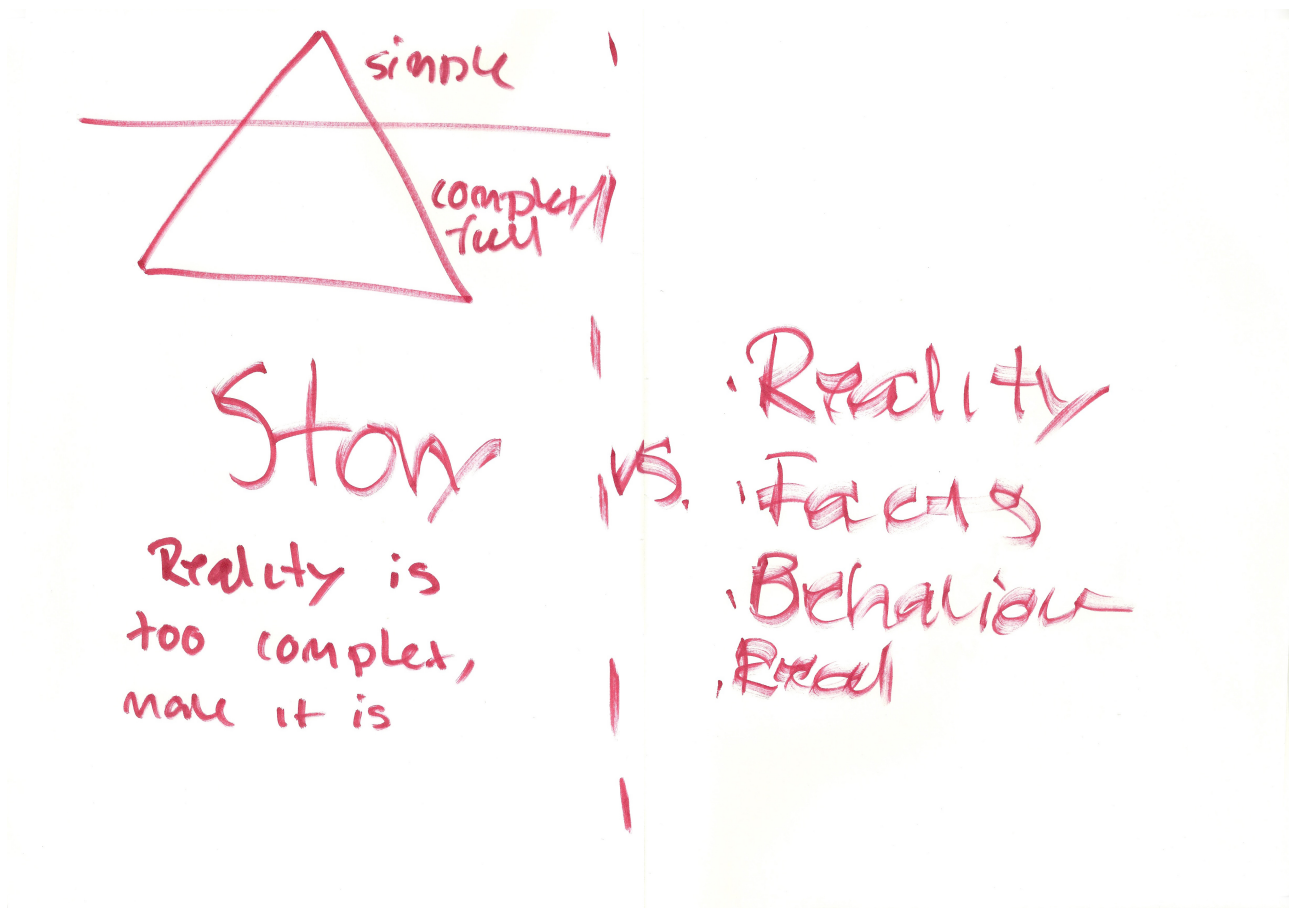 simple
complex/
full
Story
vs.
Reality is
too complex,
make it is
Reality
Facts
Behaviour
Read